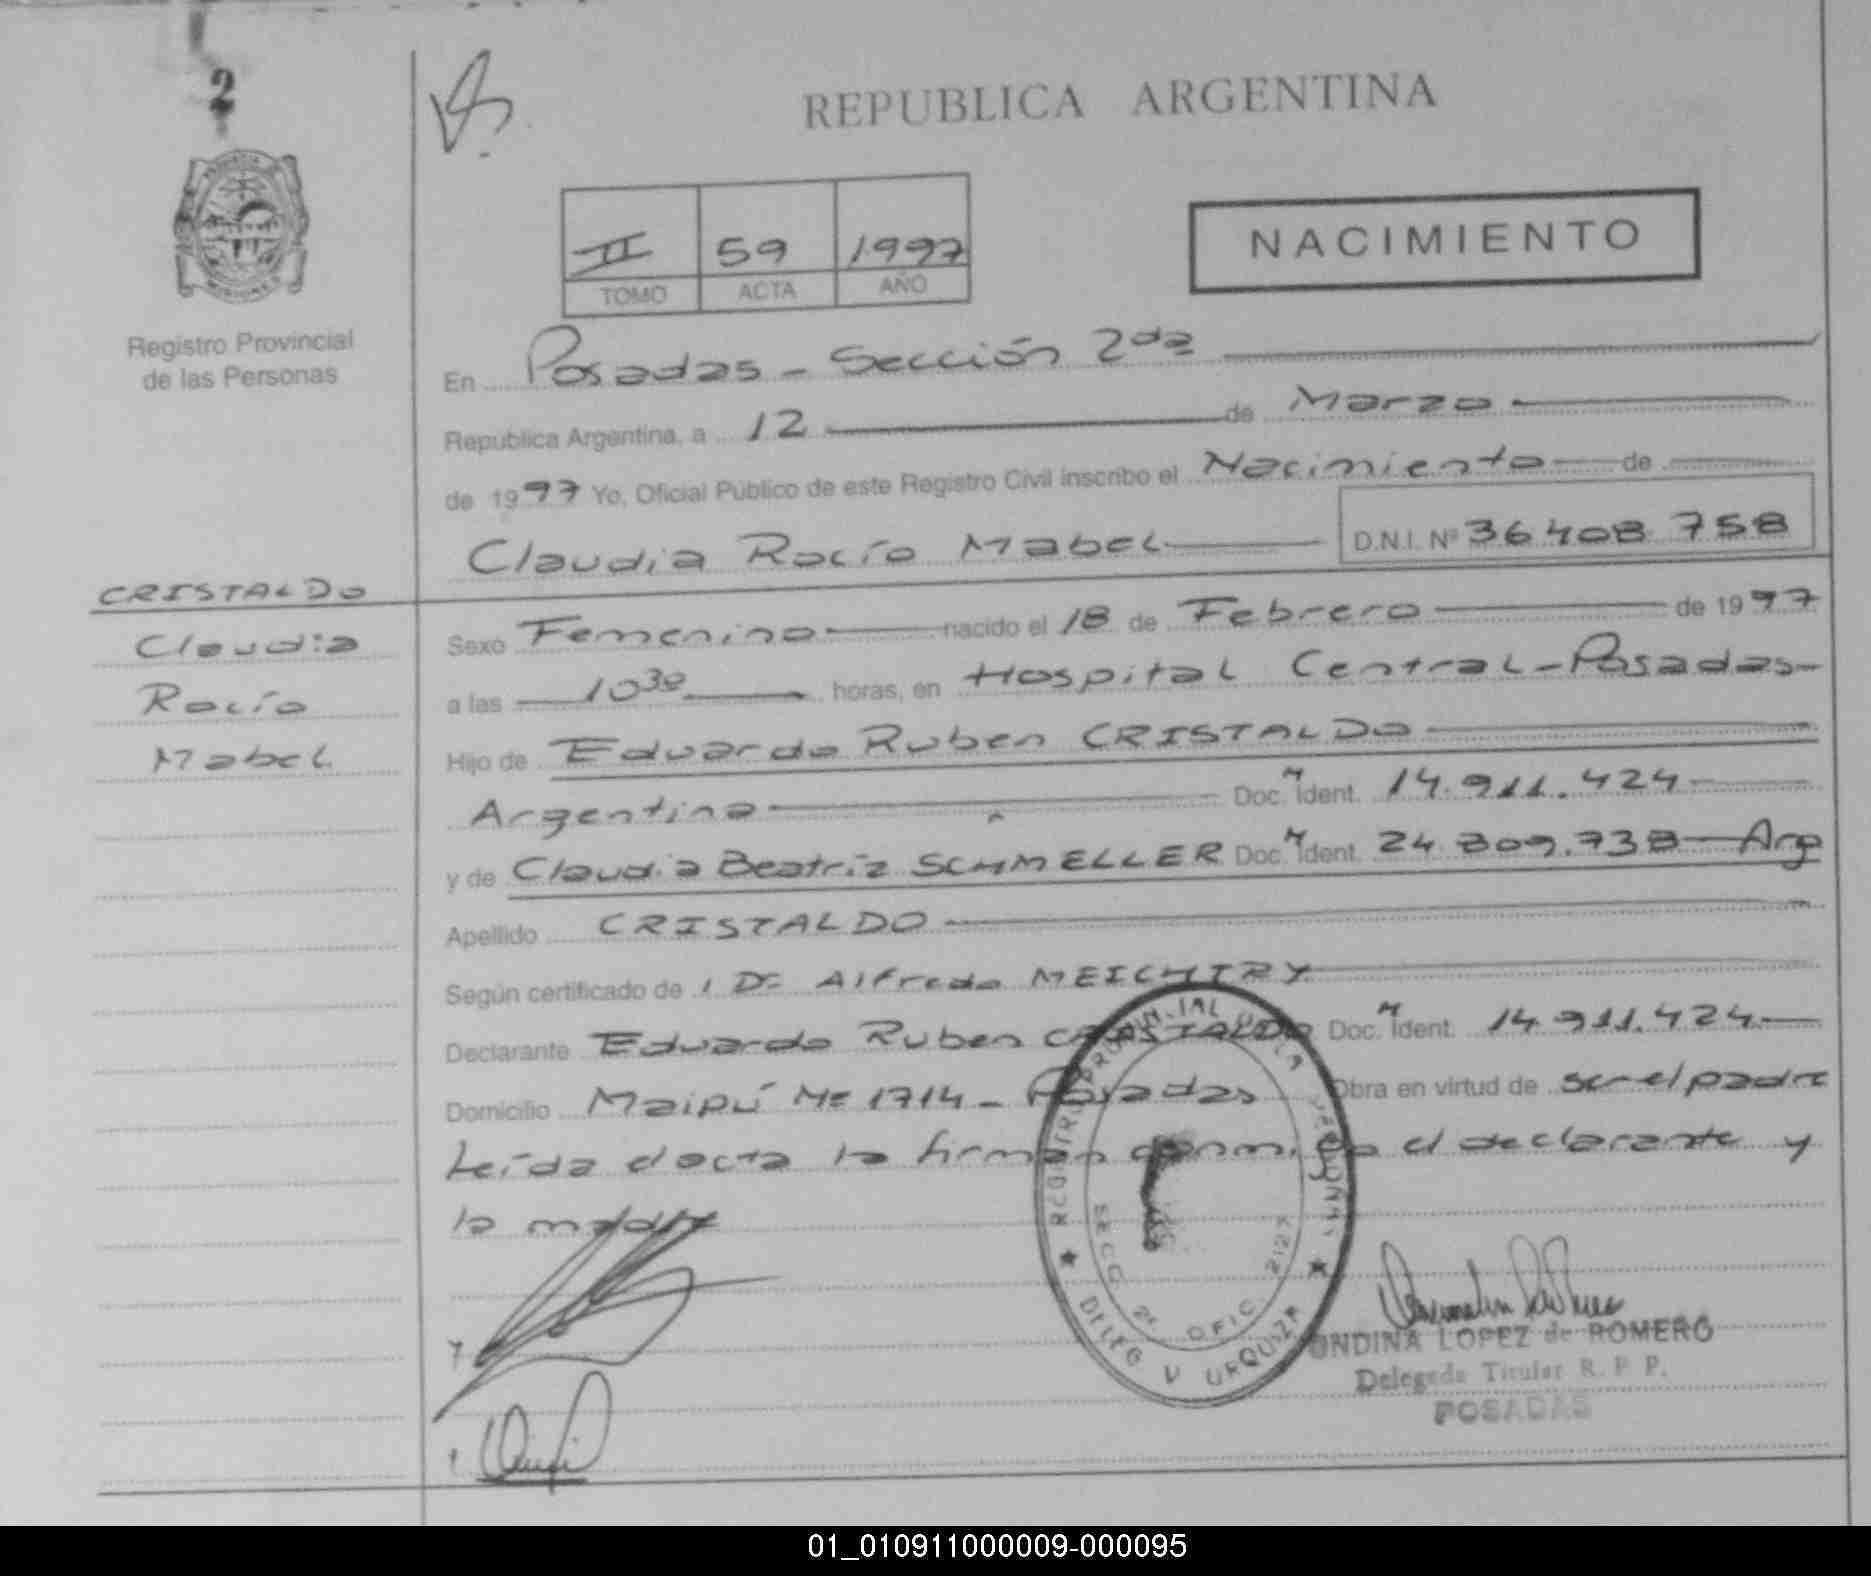 2
REPUBLICA ARGENTINA
PROVINCIA
MISIONES
Registro Provincial
de las Personas
II 59 1997
TOMO ACTA AÑO
NACIMIENTO
En Posadas - Sección 2da
Republica Argentina, a 12 de Marzo
de 1997 Yo, Oficial Público de este Registro Civil inscribo el Nacimiento de
Claudia Rocío Mabel D.N.I. Nº 36408 758
CRISTALDO
Claudia
Rocío
Mabel
Sexo Femenino nacido el 18 de Febrero de 1997
a las 10 30 horas, en Hospital Central - Posadas -
Hijo de Eduardo Ruben CRISTALDO
Argentina Doc. Ident. 14.911.424
y de Claudia Beatriz SCHMELLER Doc. Ident. 24.809.738 - Arg
Apellido CRISTALDO
Según certificado de Dr Alfredo MEICHTRY
Declarante Eduardo Ruben CRISTALDO Doc. Ident. 14.911.424
Domicilio Maipú Nº 1714 - Posadas Obra en virtud de ser el padre
Leída el acta la firman conmigo el declarante y
la madre
REGISTRO PROVINCIAL
SECC 2ª OFIC 212
DELEG V URQUIZA
ONDINA LOPEZ de ROMERO
Delegada Titular R. P. P.
POSADAS
01_010911000009-000095